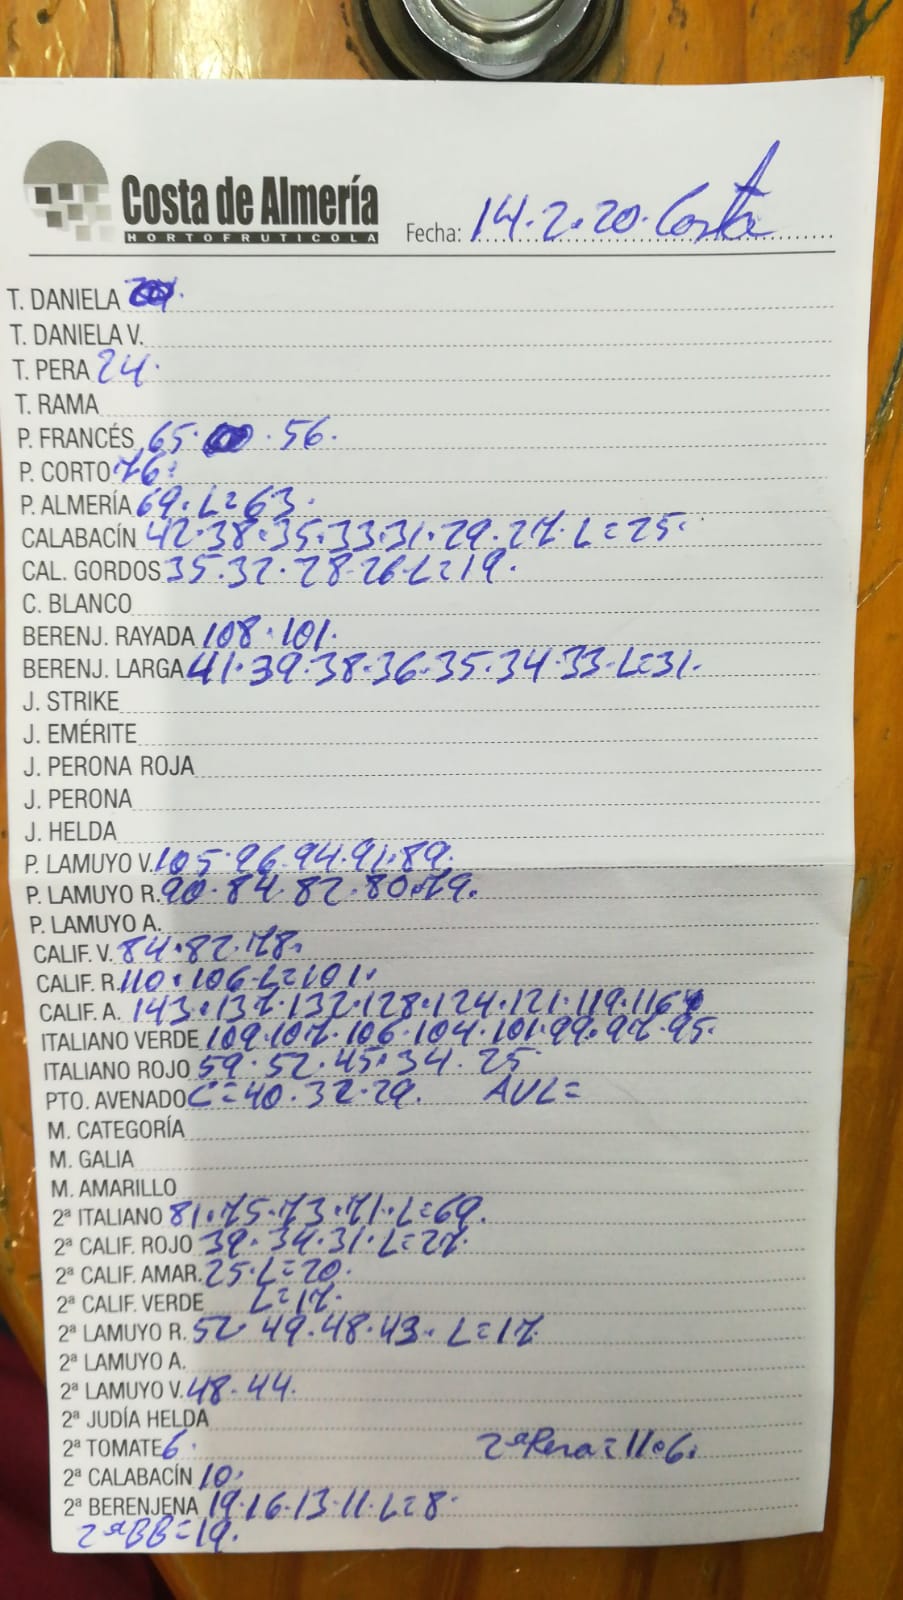 Costa de Almería
HORTOFRUTICOLA
Fecha: 14.2.20. Costa
T. DANIELA
T. DANIELA V.
T. PERA 24.
T. RAMA
P. FRANCÉS 65. . 56.
P. CORTO 76.
P. ALMERÍA 69. L=63.
CALABACÍN 42.38.35.33.31.29.27. L=25.
CAL. GORDOS 35.32.28.26.L=19.
C. BLANCO
BERENJ. RAYADA 108.101.
BERENJ. LARGA 41.39.38.36.35.34.33.L=31.
J. STRIKE
J. EMÉRITE
J. PERONA ROJA
J. PERONA
J. HELDA
P. LAMUYO V. 105.96.94.91.89.
P. LAMUYO R. 90.84.82.80.79.
P. LAMUYO A.
CALIF. V. 84.82.78.
CALIF. R. 110.106.L=101.
CALIF. A. 143.137.132.128.124.121.119.116
ITALIANO VERDE 109.107.106.104.101.99.97.95.
ITALIANO ROJO 59.52.45.34.25.
PTO. AVENADO C=40.32.29. AVL=
M. CATEGORÍA
M. GALIA
M. AMARILLO
2ª ITALIANO 81.75.73.71.L=69.
2ª CALIF. ROJO 39.34.31.L=27.
2ª CALIF. AMAR. 25.L=20.
2ª CALIF. VERDE L=17.
2ª LAMUYO R. 52.49.48.43. L=17.
2ª LAMUYO A.
2ª LAMUYO V. 48.44.
2ª JUDÍA HELDA
2ª TOMATE 6. 2ªPera=11.6.
2ª CALABACÍN 10.
2ª BERENJENA 19.16.13.11.L=8.
2ªBB=19.